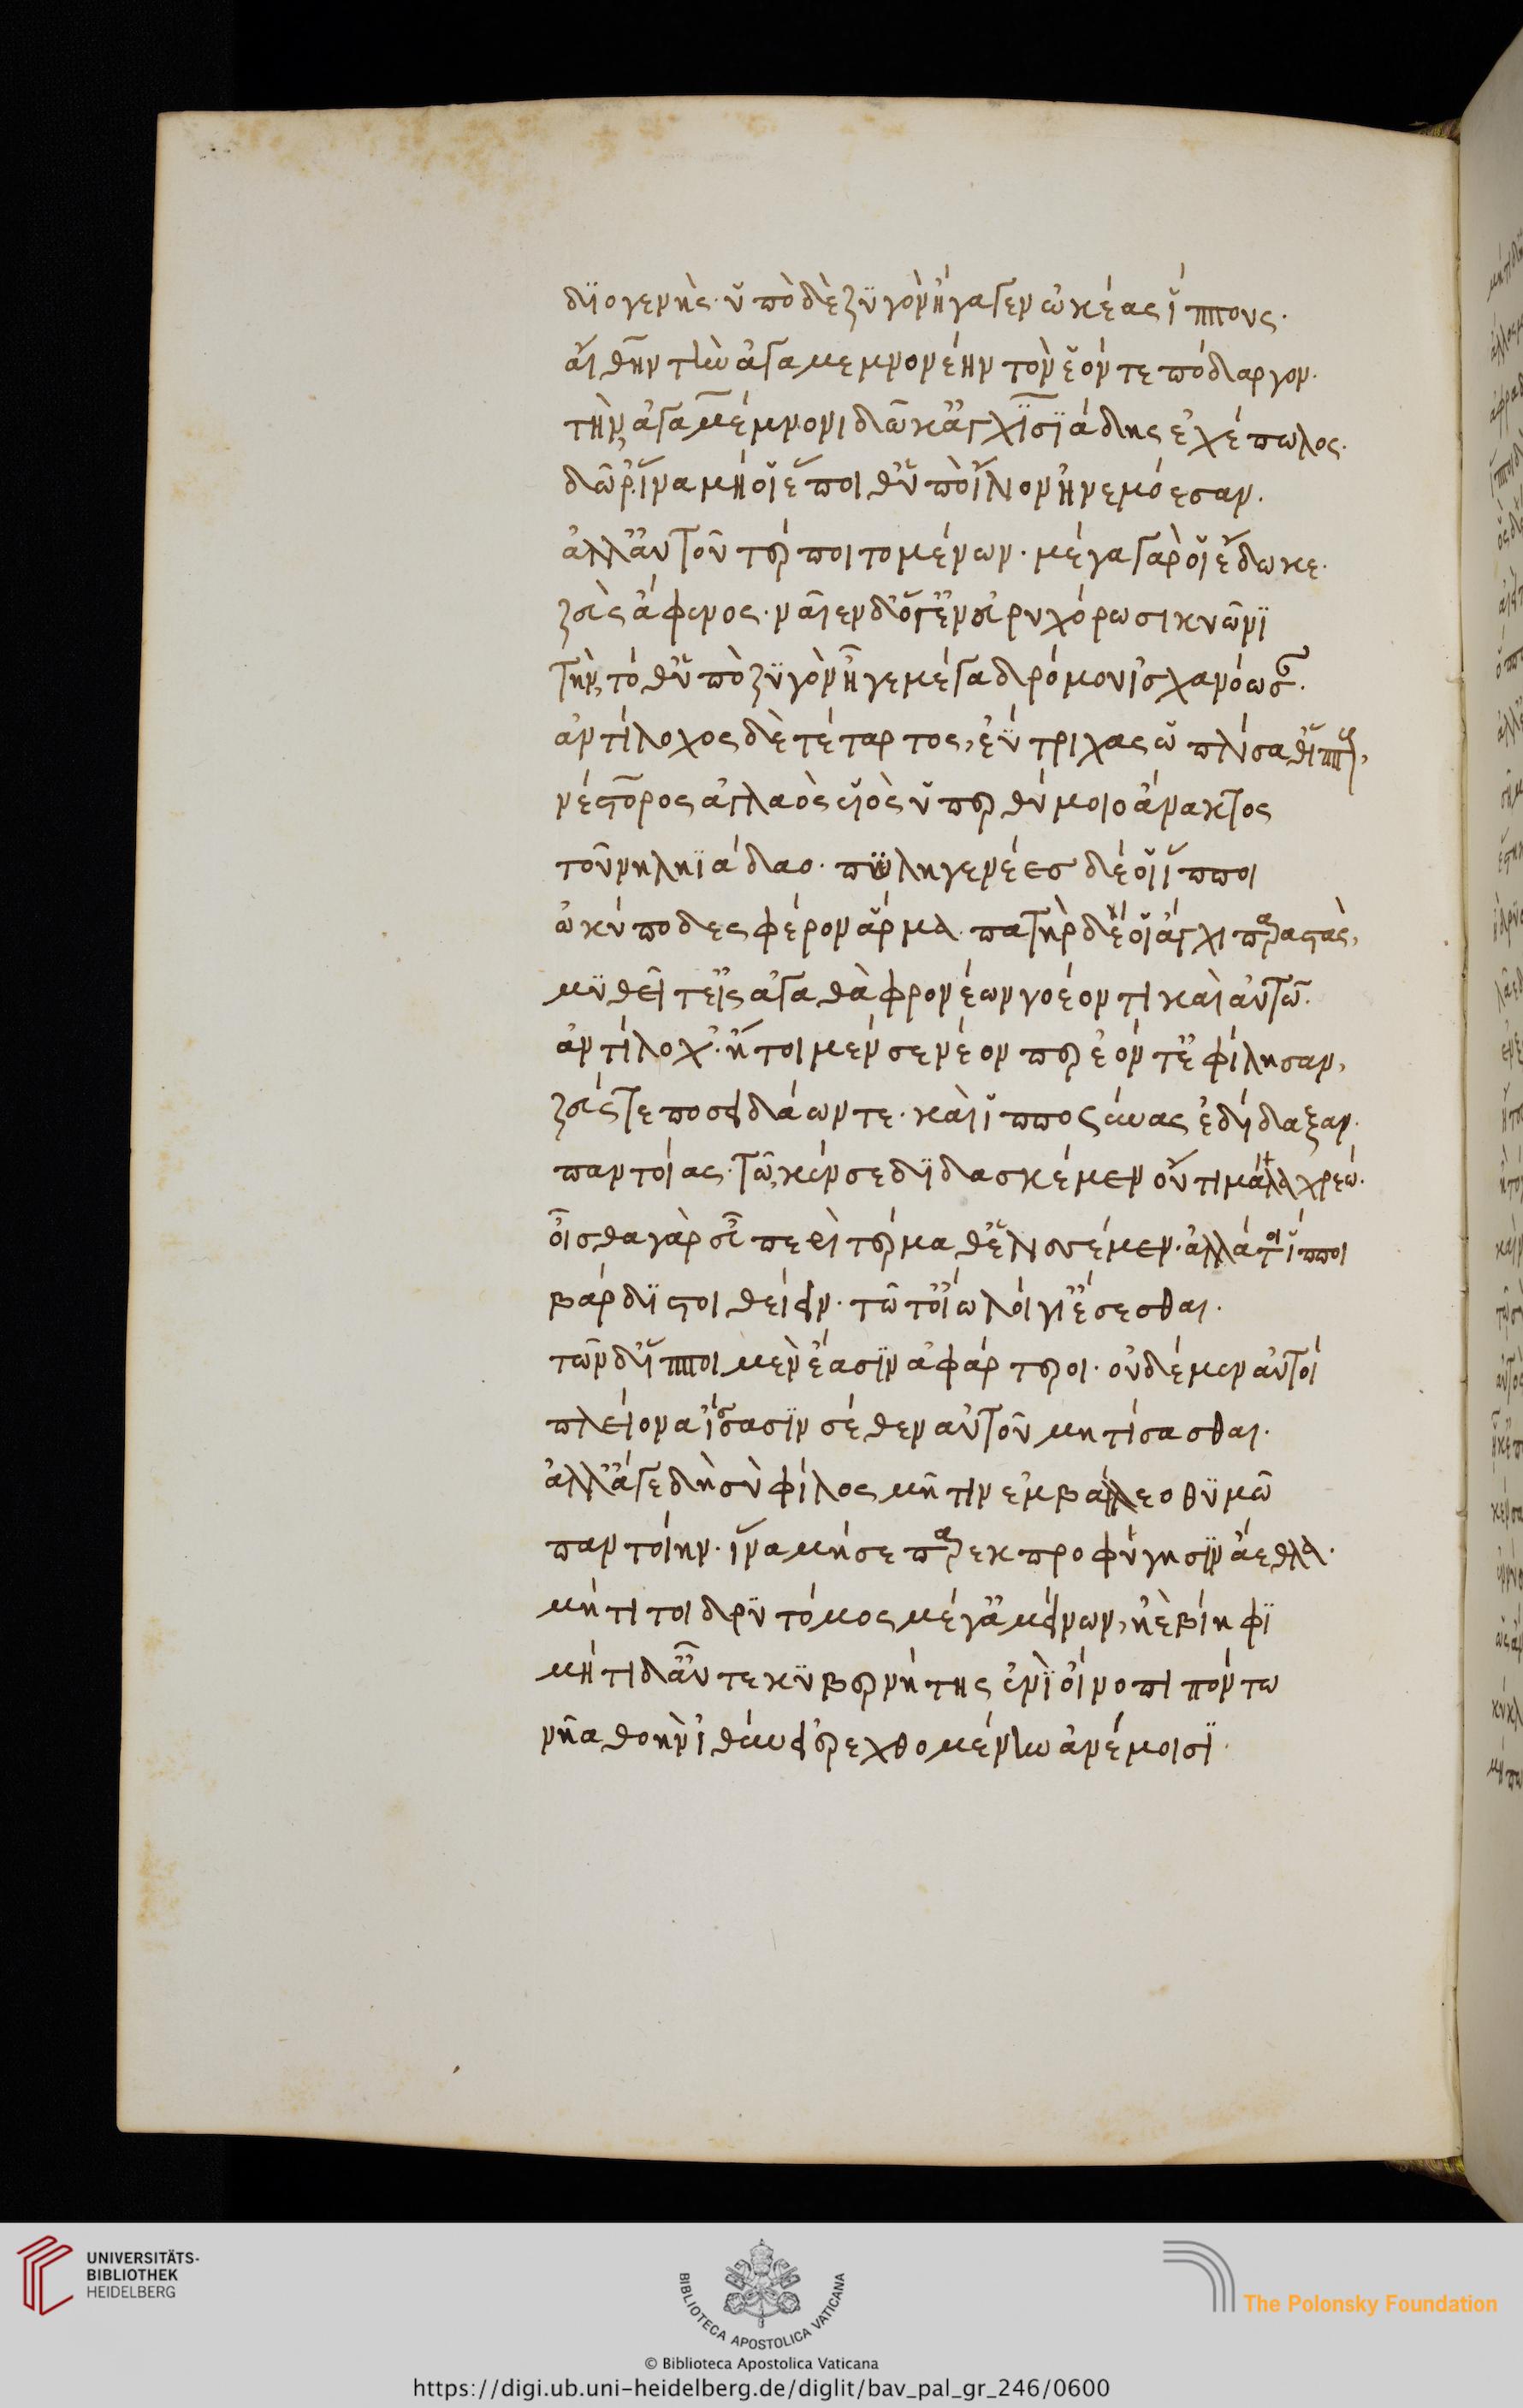 διογενὴς· ὑπὸ δὲ ζυγὸν ἤγαγεν ὠκέας ἵππους·
αἴθην τὴν ἀγαμεμνονέην τὸν ἑόν τε πόδαργον·
τὴν ἀγαμέμνονι δῶκ' ἀγχϊσϊάδης ἐχέπωλος·
δῶρ', ἵνα μή οἱ ἕποιθ' ὑπὸ ἴλιον ἠνεμόεσσαν·
ἀλλ' αὐτοῦ τέρποιτο μένων· μέγα γάρ οἱ ἔδωκε·
ζεὺς ἄφενος· ναῖεν δ' ὅγ' ἐν εὐρυχόρω σικυῶνϊ
τὴν, τόθ' ὑπὸ ζυγὸν ἦγε μέγα δρόμου ἰσχανόωσαν·
ἀντίλοχος δὲ τέταρτος, ἐΰτριχας ὡπλίσαθ' ἵππους,
νέστορος ἀγλαὸς υἱὸς ὑπερθύμοιο ἄνακτος
τοῦ νηληϊάδαο· πυληγενέες δέ οἱ ἵπποι
ὠκύποδες φέρον ἅρμα· πατὴρ δέ οἱ ἄγχι παραστὰς,
μυθεῖτ' εἰς ἀγαθὰ φρονέων νοέοντι καὶ αὐτῶ·
ἀντίλοχ'· ἤτοι μέν σε νέον περ ἐόντ' ἐφίλησαν,
ζεύς τε ποσειδάων τε· καὶ ἱπποσύνας ἐδίδαξαν·
παντοίας· τῶ, καί σε διδασκέμεν οὔτι μάλα χρεώ·
οἶσθα γὰρ εὖ περὶ τέρμαθ' ἑλισσέμεν· ἀλλά τοι ἵπποι
βάρδιστοι θείειν· τῶ τ' οἴω λοίγι' ἔσεσθαι·
τῶν δ' ἵπποι μὲν ἔασϊν ἀφάρτεροι· οὐδέ μεν αὐτοί
πλείονα ἴσασϊν σέθεν αὐτοῦ μητίσασθαι·
ἀλλ' ἄγε δὴ σὺ φίλος μῆτιν ἐμβάλλεο θυμῶ
παντοίην· ἵνα μή σε παρεκπροφύγησιν ἄεθλα·
μήτι τοι δρυτόμος μέγ' ἀμείνων, ἠὲ βίηφϊ
μήτι δ' αὖτε κυβερνήτης ἐνὶ οἴνοπι πόντω
νῆα θοὴν ἰθύνει ἐρεχθομένην ἀνέμοισϊ·
UNIVERSITÄTS-
BIBLIOTHEK
HEIDELBERG
BIBLIOTECA APOSTOLICA VATICANA
The Polonsky Foundation
© Biblioteca Apostolica Vaticana
https://digi.ub.uni-heidelberg.de/diglit/bav_pal_gr_246/0600